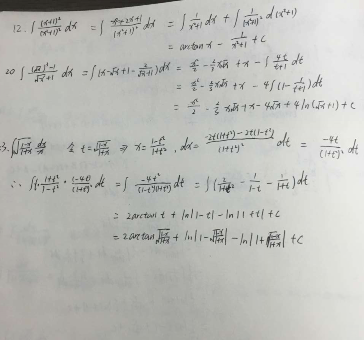 12. ∫ (x+1)²/(x²+1)² dx = ∫ (x²+2x+1)/(x²+1)² dx = ∫ 1/(x²+1) dx + ∫ 1/(x²+1)² d(x²+1)
= arctan x - 1/(x²+1) + C
20 ∫ ((√x)³-1)/(√x+1) dx = ∫(x-√x+1- 2/(√x+1)) dx = x²/2 - 2/3 x√x + x - ∫ 4t/(t+1) dt
= x²/2 - 2/3 x√x + x - 4∫(1- 1/(t+1)) dt
= x²/2 - 2/3 x√x + x - 4√x + 4ln(√x+1) + C
3. ∫ √((1-x)/(1+x)) dx/x 令 t=√((1-x)/(1+x)) ⇒ x= (1-t²)/(1+t²), dx= (-2t(1+t²)-2t(1-t²))/(1+t²)² dt = -4t/(1+t²)² dt
∴ ∫ t· (1+t²)/(1-t²) · (-4t)/(1+t²)² dt = ∫ -4t²/((1-t²)(1+t²)) dt = ∫ (2/(1+t²) - 1/(1-t) - 1/(1+t)) dt
= 2arctan t + ln|1-t| - ln|1+t| + C
= 2arctan √((1-x)/(1+x)) + ln|1-√((1-x)/(1+x))| - ln|1+√((1-x)/(1+x))| + C